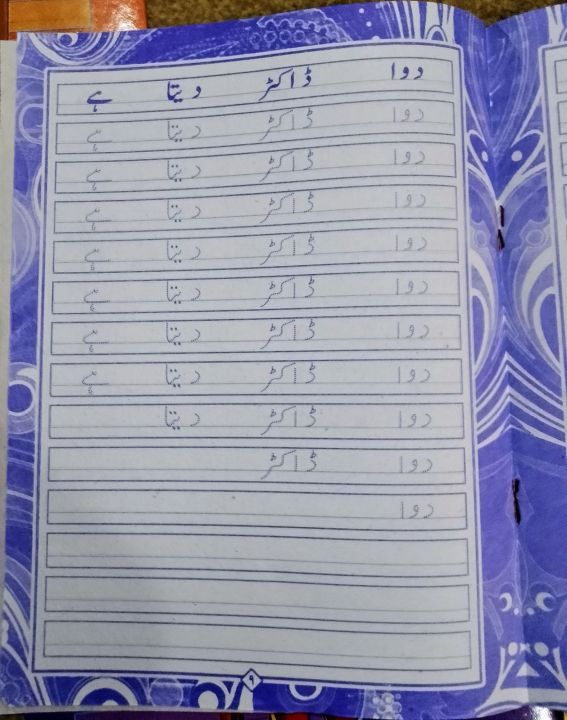 دوا ڈاکٹر دیتا ہے
دوا ڈاکٹر دیتا ہے
دوا ڈاکٹر دیتا ہے
دوا ڈاکٹر دیتا ہے
دوا ڈاکٹر دیتا ہے
دوا ڈاکٹر دیتا ہے
دوا ڈاکٹر دیتا ہے
دوا ڈاکٹر دیتا ہے
دوا ڈاکٹر دیتا
دوا ڈاکٹر
دوا
۹